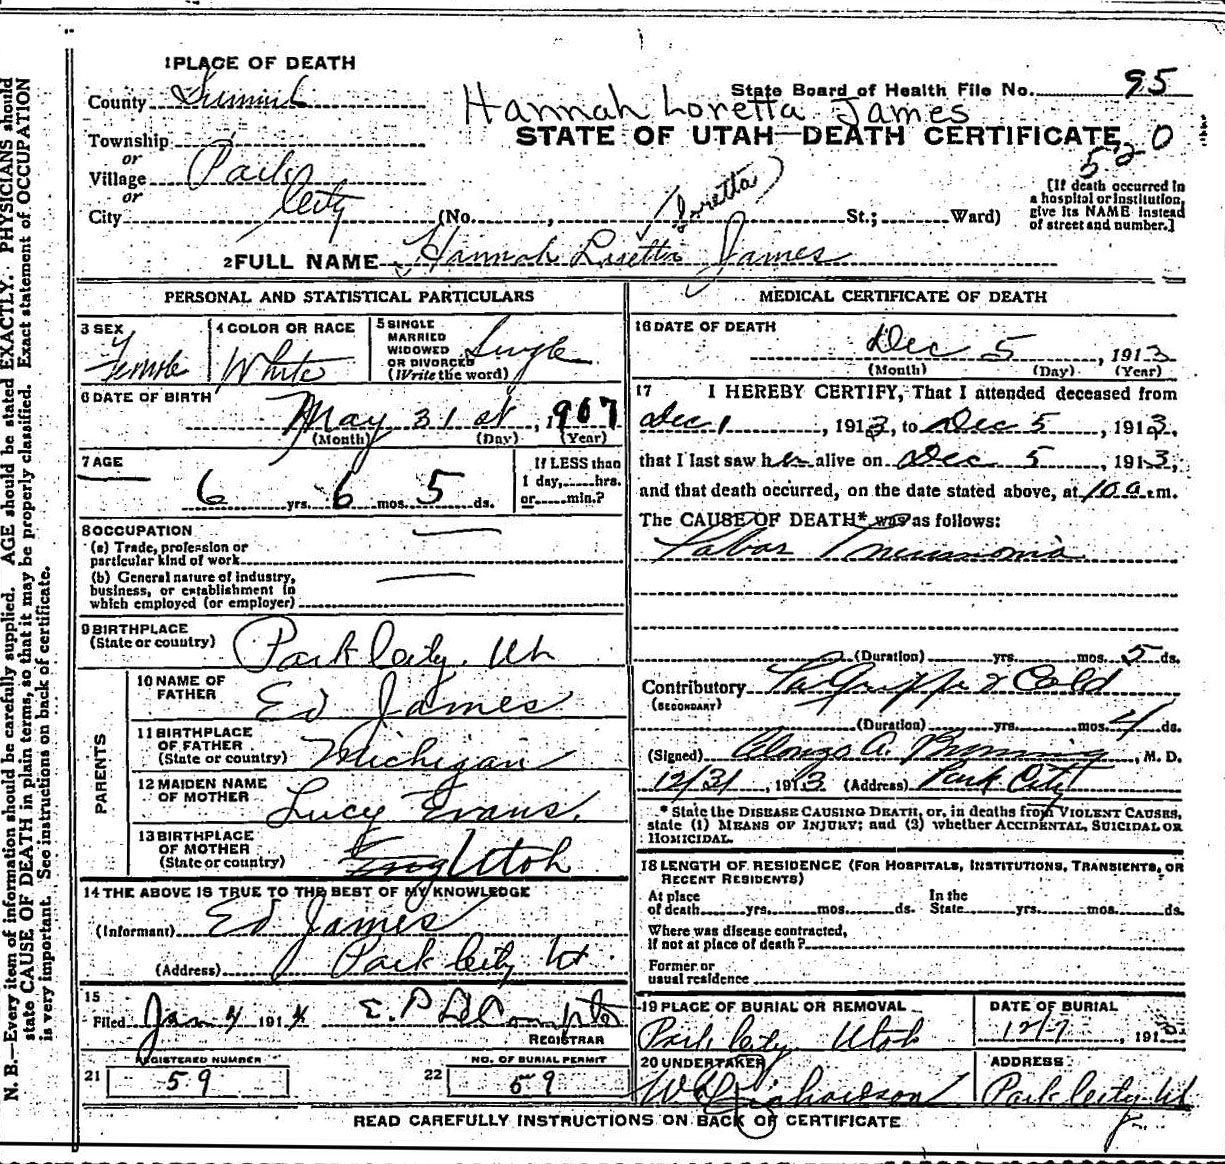 1 PLACE OF DEATH
County Summit
State Board of Health File No. 95
Hannah Loretta James
STATE OF UTAH—DEATH CERTIFICATE
520
Township
or
Village Park
or City
City (No. , St.; Ward)
(Loretta)
[If death occurred in
a hospital or institution,
give its NAME instead
of street and number.]
2 FULL NAME Hannah Lisetta James
PERSONAL AND STATISTICAL PARTICULARS
3 SEX Female
4 COLOR OR RACE White
5 SINGLE
MARRIED
WIDOWED
OR DIVORCED
(Write the word)
Single
6 DATE OF BIRTH
May 31 st, 1907
(Month) (Day) (Year)
7 AGE
6 yrs. 6 mos. 5 ds.
If LESS than
1 day, hrs.
or min.?
8 OCCUPATION
(a) Trade, profession or
particular kind of work
(b) General nature of industry,
business, or establishment in
which employed (or employer)
9 BIRTHPLACE
(State or country) Park City. Ut
PARENTS
10 NAME OF
FATHER Ed James
11 BIRTHPLACE
OF FATHER
(State or country) Michigan
12 MAIDEN NAME
OF MOTHER Lucy Evans.
13 BIRTHPLACE
OF MOTHER
(State or country) Eng Utah
14 THE ABOVE IS TRUE TO THE BEST OF MY KNOWLEDGE
(Informant) Ed James
(Address) Park City Ut.
15
Filed Jan 4 1914 E. P. LeCompte
REGISTRAR
REGISTERED NUMBER
21 59
NO. OF BURIAL PERMIT
22 59
MEDICAL CERTIFICATE OF DEATH
16 DATE OF DEATH
Dec 5, 1913
(Month) (Day) (Year)
17 I HEREBY CERTIFY, That I attended deceased from
Dec 1, 1913, to Dec 5, 1913,
that I last saw her alive on Dec 5, 1913,
and that death occurred, on the date stated above, at 10 a.m.
The CAUSE OF DEATH* was as follows:
Lobar Pneumonia
(Duration) yrs. mos. 5 ds.
Contributory La Grippe & Cold
(SECONDARY)
(Duration) yrs. mos. 4 ds.
(Signed) Alonzo A. , M. D.
12/31, 1913 (Address) Park City
* State the DISEASE CAUSING DEATH, or, in deaths from VIOLENT CAUSES,
state (1) MEANS OF INJURY; and (2) whether ACCIDENTAL, SUICIDAL OR
HOMICIDAL.
18 LENGTH OF RESIDENCE (FOR HOSPITALS, INSTITUTIONS, TRANSIENTS, OR
RECENT RESIDENTS)
At place
of death yrs. mos. ds.
In the
State yrs. mos. ds.
Where was disease contracted,
if not at place of death?
Former or
usual residence
19 PLACE OF BURIAL OR REMOVAL
Park City Utah
DATE OF BURIAL
12/7, 1913
20 UNDERTAKER
Richardson
ADDRESS
Park City Ut
READ CAREFULLY INSTRUCTIONS ON BACK OF CERTIFICATE
N. B.—Every item of information should be carefully supplied. AGE should be stated EXACTLY. PHYSICIANS should
state CAUSE OF DEATH in plain terms, so that it may be properly classified. Exact statement of OCCUPATION
is very important. See instructions on back of certificate.